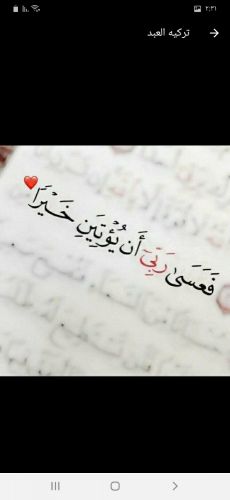 ٢:٣١
تركيه العبد
فَعَسَىٰ رَبِّيَ أَن يُؤْتِيَنِ خَيْرًا